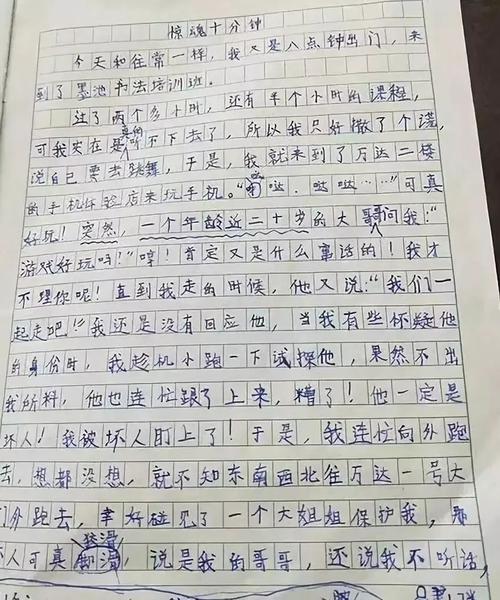 惊魂十分钟
今天和往常一样，我又是八点钟出门，来
到了墨池书法培训班。
过了两个多小时，还有半个小时的课程，
可我实在是真的听不下去了，所以我只好撒了个谎，
说自己要去跳舞，于是，我就来到了万达二楼
的手机体验店来玩手机。“哒，哒哒……”可真
好玩！突然，一个年龄近二十岁的大哥哥问我：“
游戏好玩吗！”哼！肯定又是什么事话的！我才
不理你呢！直到我走的时候，他又说：“我们一
起走吧！”我还是没有回应他，当我有些怀疑他
的身份时，我趁机小跑一下试探他，果然不出
我所料，他也连忙跟了上来，糟了！他一定是
坏人！我被坏人盯上了！于是，我连忙向外跑
去，想都没想，就不知东南西北往万达一号大
门外跑去，幸好碰见了一个大姐姐保护我，那
人可真狡滑，说是我的哥哥，还说我不听话，